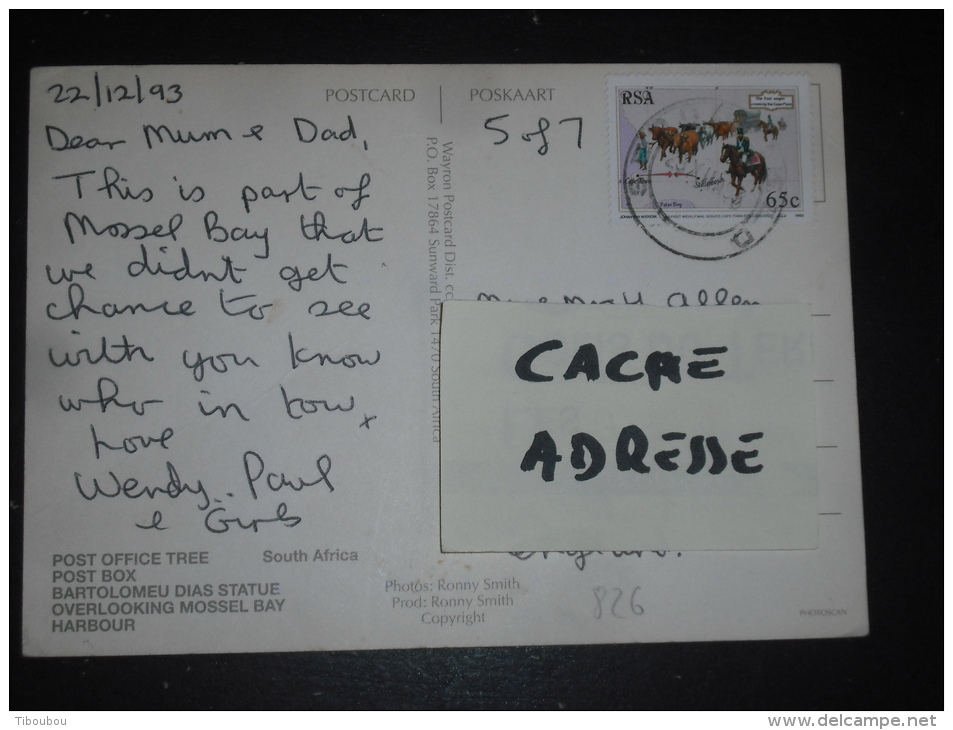 22/12/93
POSTCARD
POSKAART
5 of 7
RSA
65c
False Bay
Dear Mum & Dad,
This is part of
Mossel Bay that
we didnt get
chance to see
with you know
who in tow x
Love
Wendy.. Paul
& Girls
Wayron Postcard Dist. cc
P.O. Box 17864 Sunward Park 1470 South Africa
Allen
CACHE
ADRESSE
England.
POST OFFICE TREE South Africa
POST BOX
BARTOLOMEU DIAS STATUE
OVERLOOKING MOSSEL BAY
HARBOUR
Photos: Ronny Smith
Prod: Ronny Smith
Copyright
826
PHOTOSCAN
Tiboubou
delcampe.net